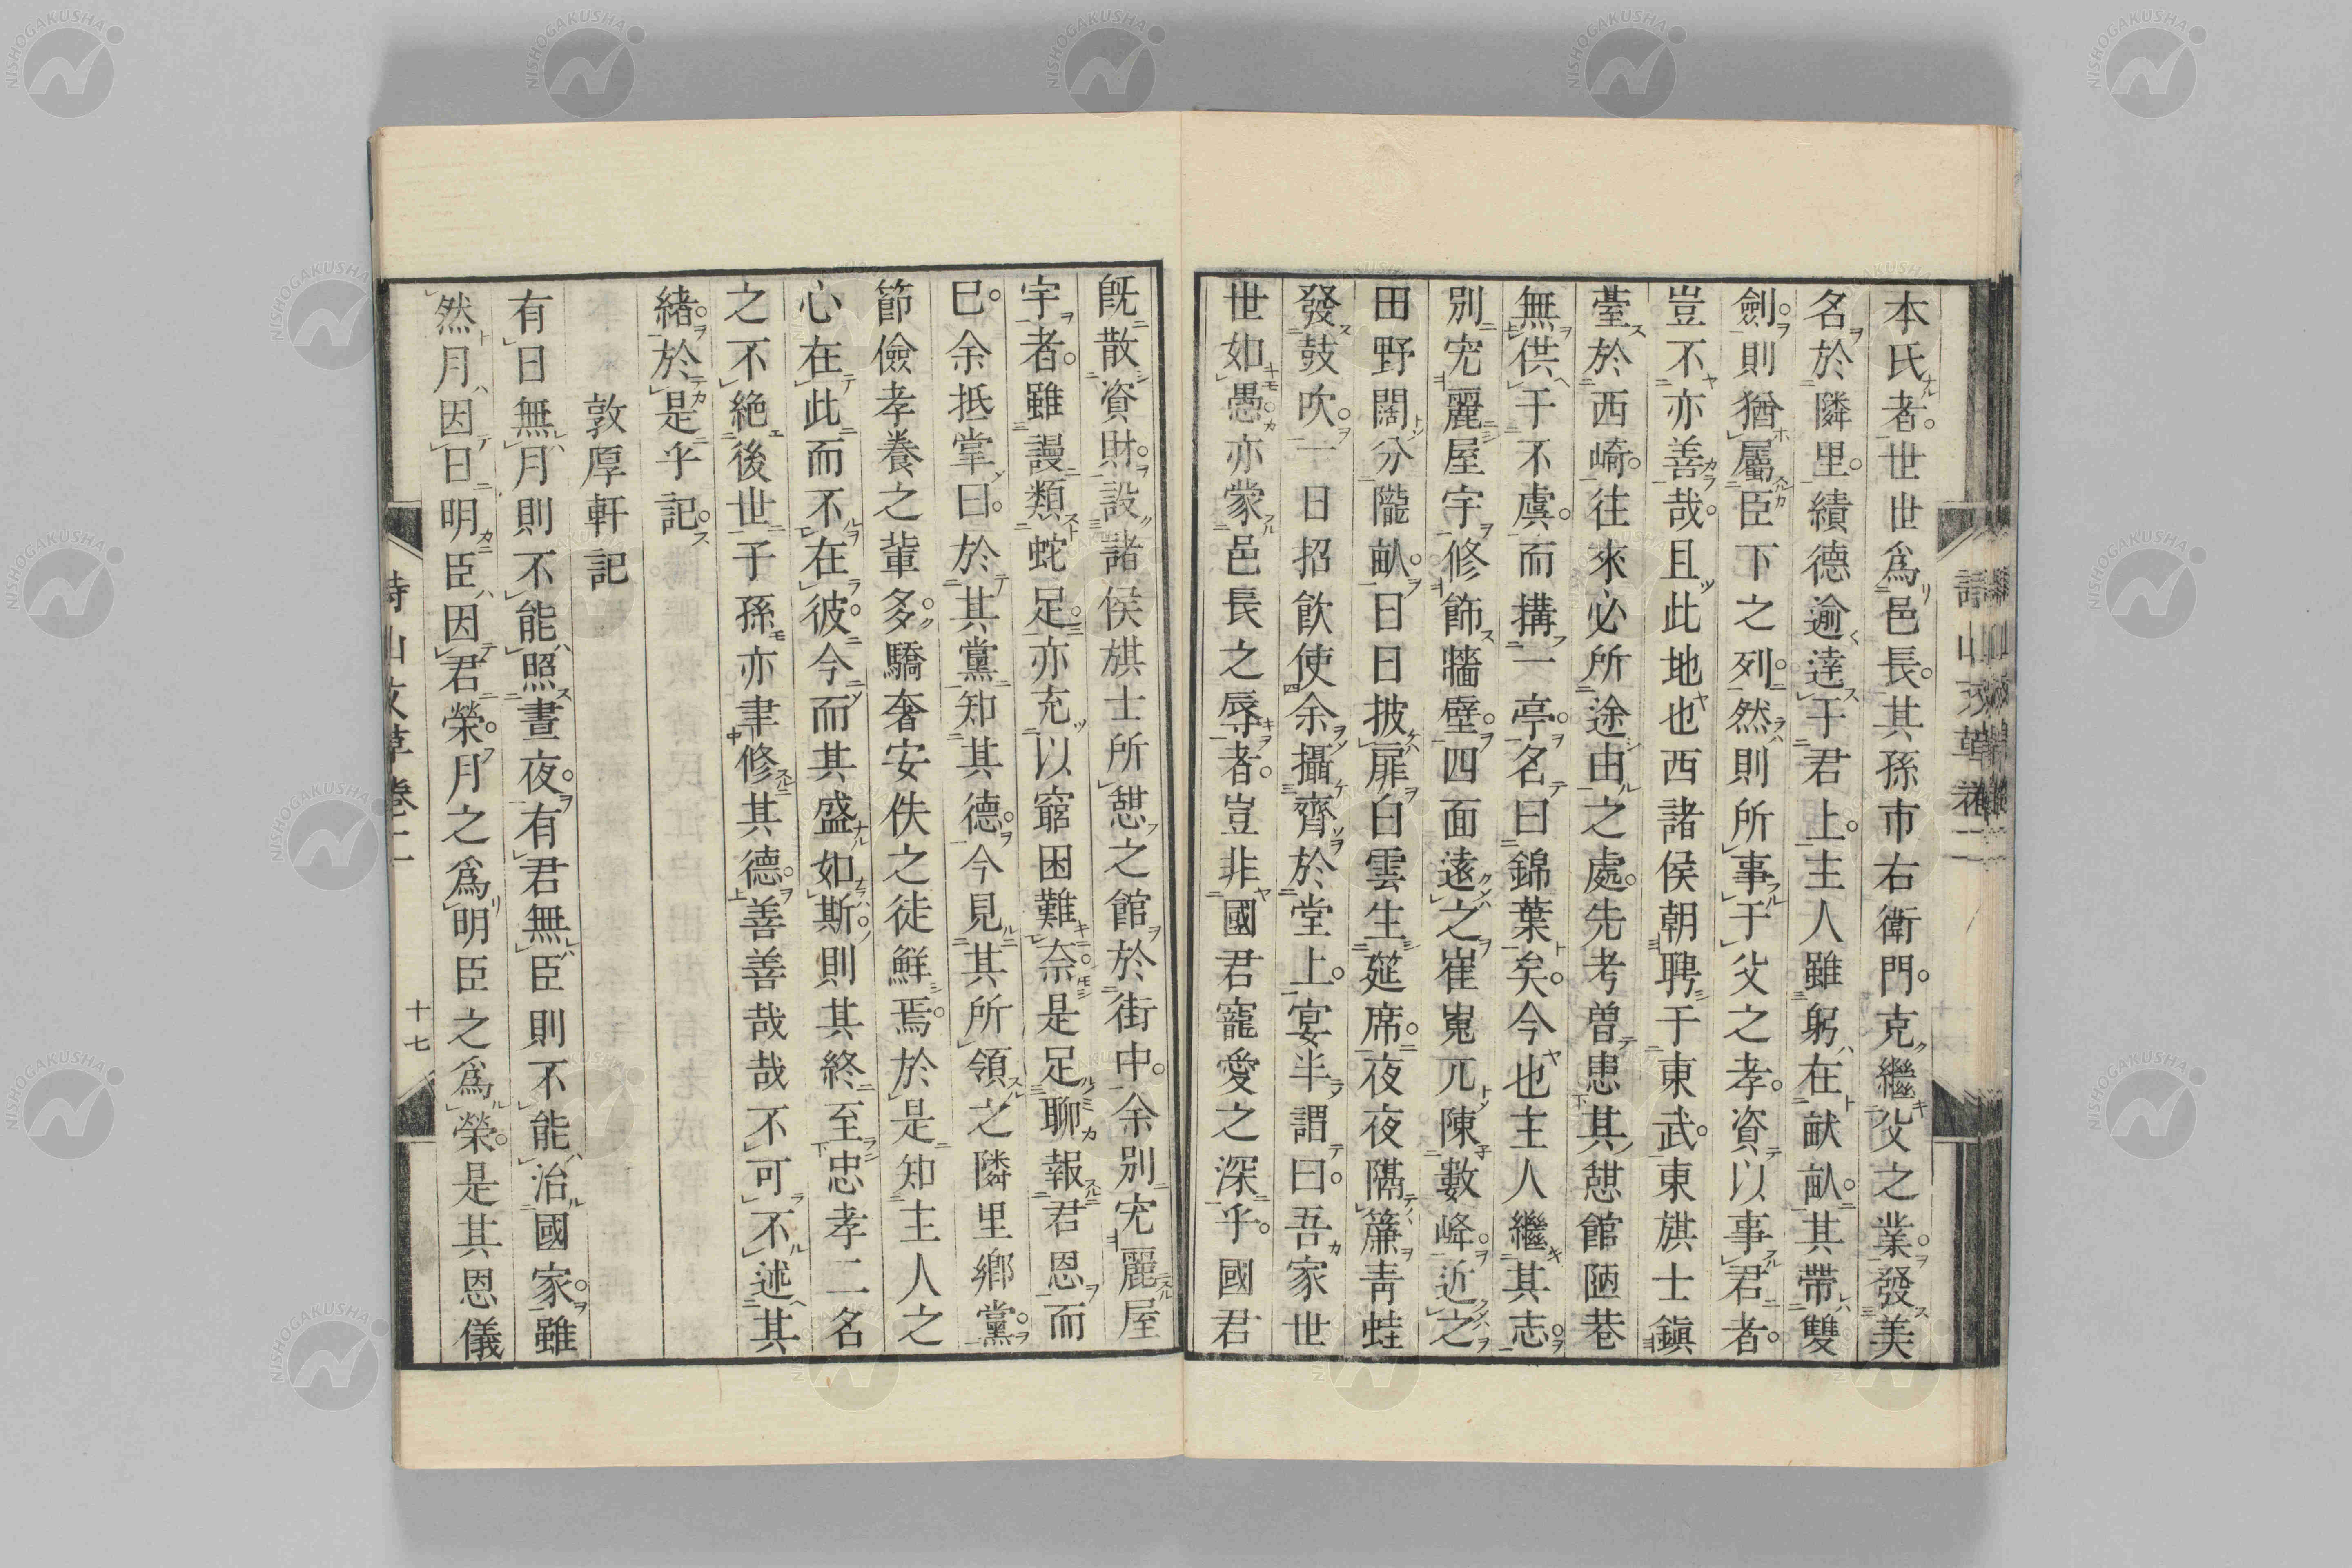 本氏者世世爲邑長其孫市右衛門克繼父之業發美
名於隣里績德逾達于君上主人雖躬在畎畝其帶雙
劍則猶屬臣下之列然則所事于父之孝資以事君者
豈不亦善哉且此地也西諸侯朝聘于東武東旗士鎭
臺於西崎往來必所途由之處先考曽患其憇館陋巷
無供于不虞而搆一亭名曰錦葉矣今也主人繼其志
別宏麗屋宇修飾牆壁四面遠之崔嵬兀陳數峰近之
田野闊分隴畝日日披扉白雲生筵席夜夜隔簾靑蛙
發鼓吹一日招飮使余攝齊於堂上宴半謂曰吾家世
世如愚亦蒙邑長之辱者豈非國君寵愛之深乎國君
既散資財設諸侯旗士所憇之館於街中余別宏麗屋
宇者雖謾類蛇足亦充以窮困難奈是足聊報君恩而
已余抵掌曰於其黨知其德今見其所領之隣里鄉黨
節儉孝養之輩多驕奢安佚之徒鮮焉於是知主人之
心在此而不在彼今而其盛如斯則其終至忠孝二名
之不絶後世子孫亦聿修其德善善哉哉不可不述其
緒於是乎記
敦厚軒記
有日無月則不能照晝夜有君無臣則不能治國家雖
然月因日明臣因君榮月之爲明臣之爲榮是其恩儀
十七
NISHOGAKUSHA